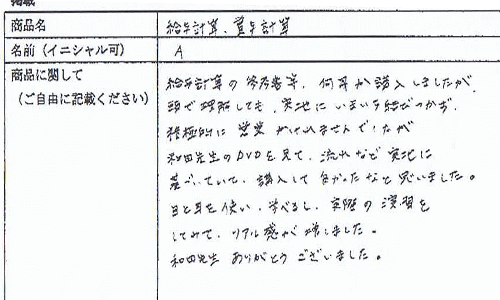 商品名 給与計算、賞与計算
名前(イニシャル可) A
商品に関して
(ご自由に記載ください)
給与計算の参考書等、何冊か購入しましたが、
頭で理解しても、実地にいまいち結びつかず、
積極的に営業がけれませんでしたが
和田先生のDVDを見て、流れなど実地に
基づいていて、購入して良かったなと思いました。
目と耳を使い、学べるし、実際の演習を
してみて、リアル感が増しました。
和田先生 ありがとうございました。